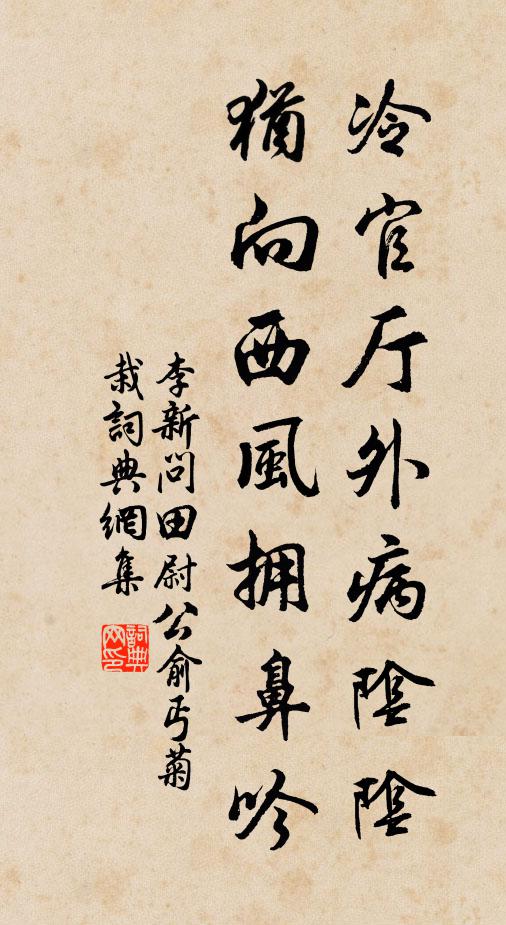 冷官厅外病陰陰
猶向西風拥鼻吟
李新問田尉公俞丐菊
栽詞典網集
詞典网印